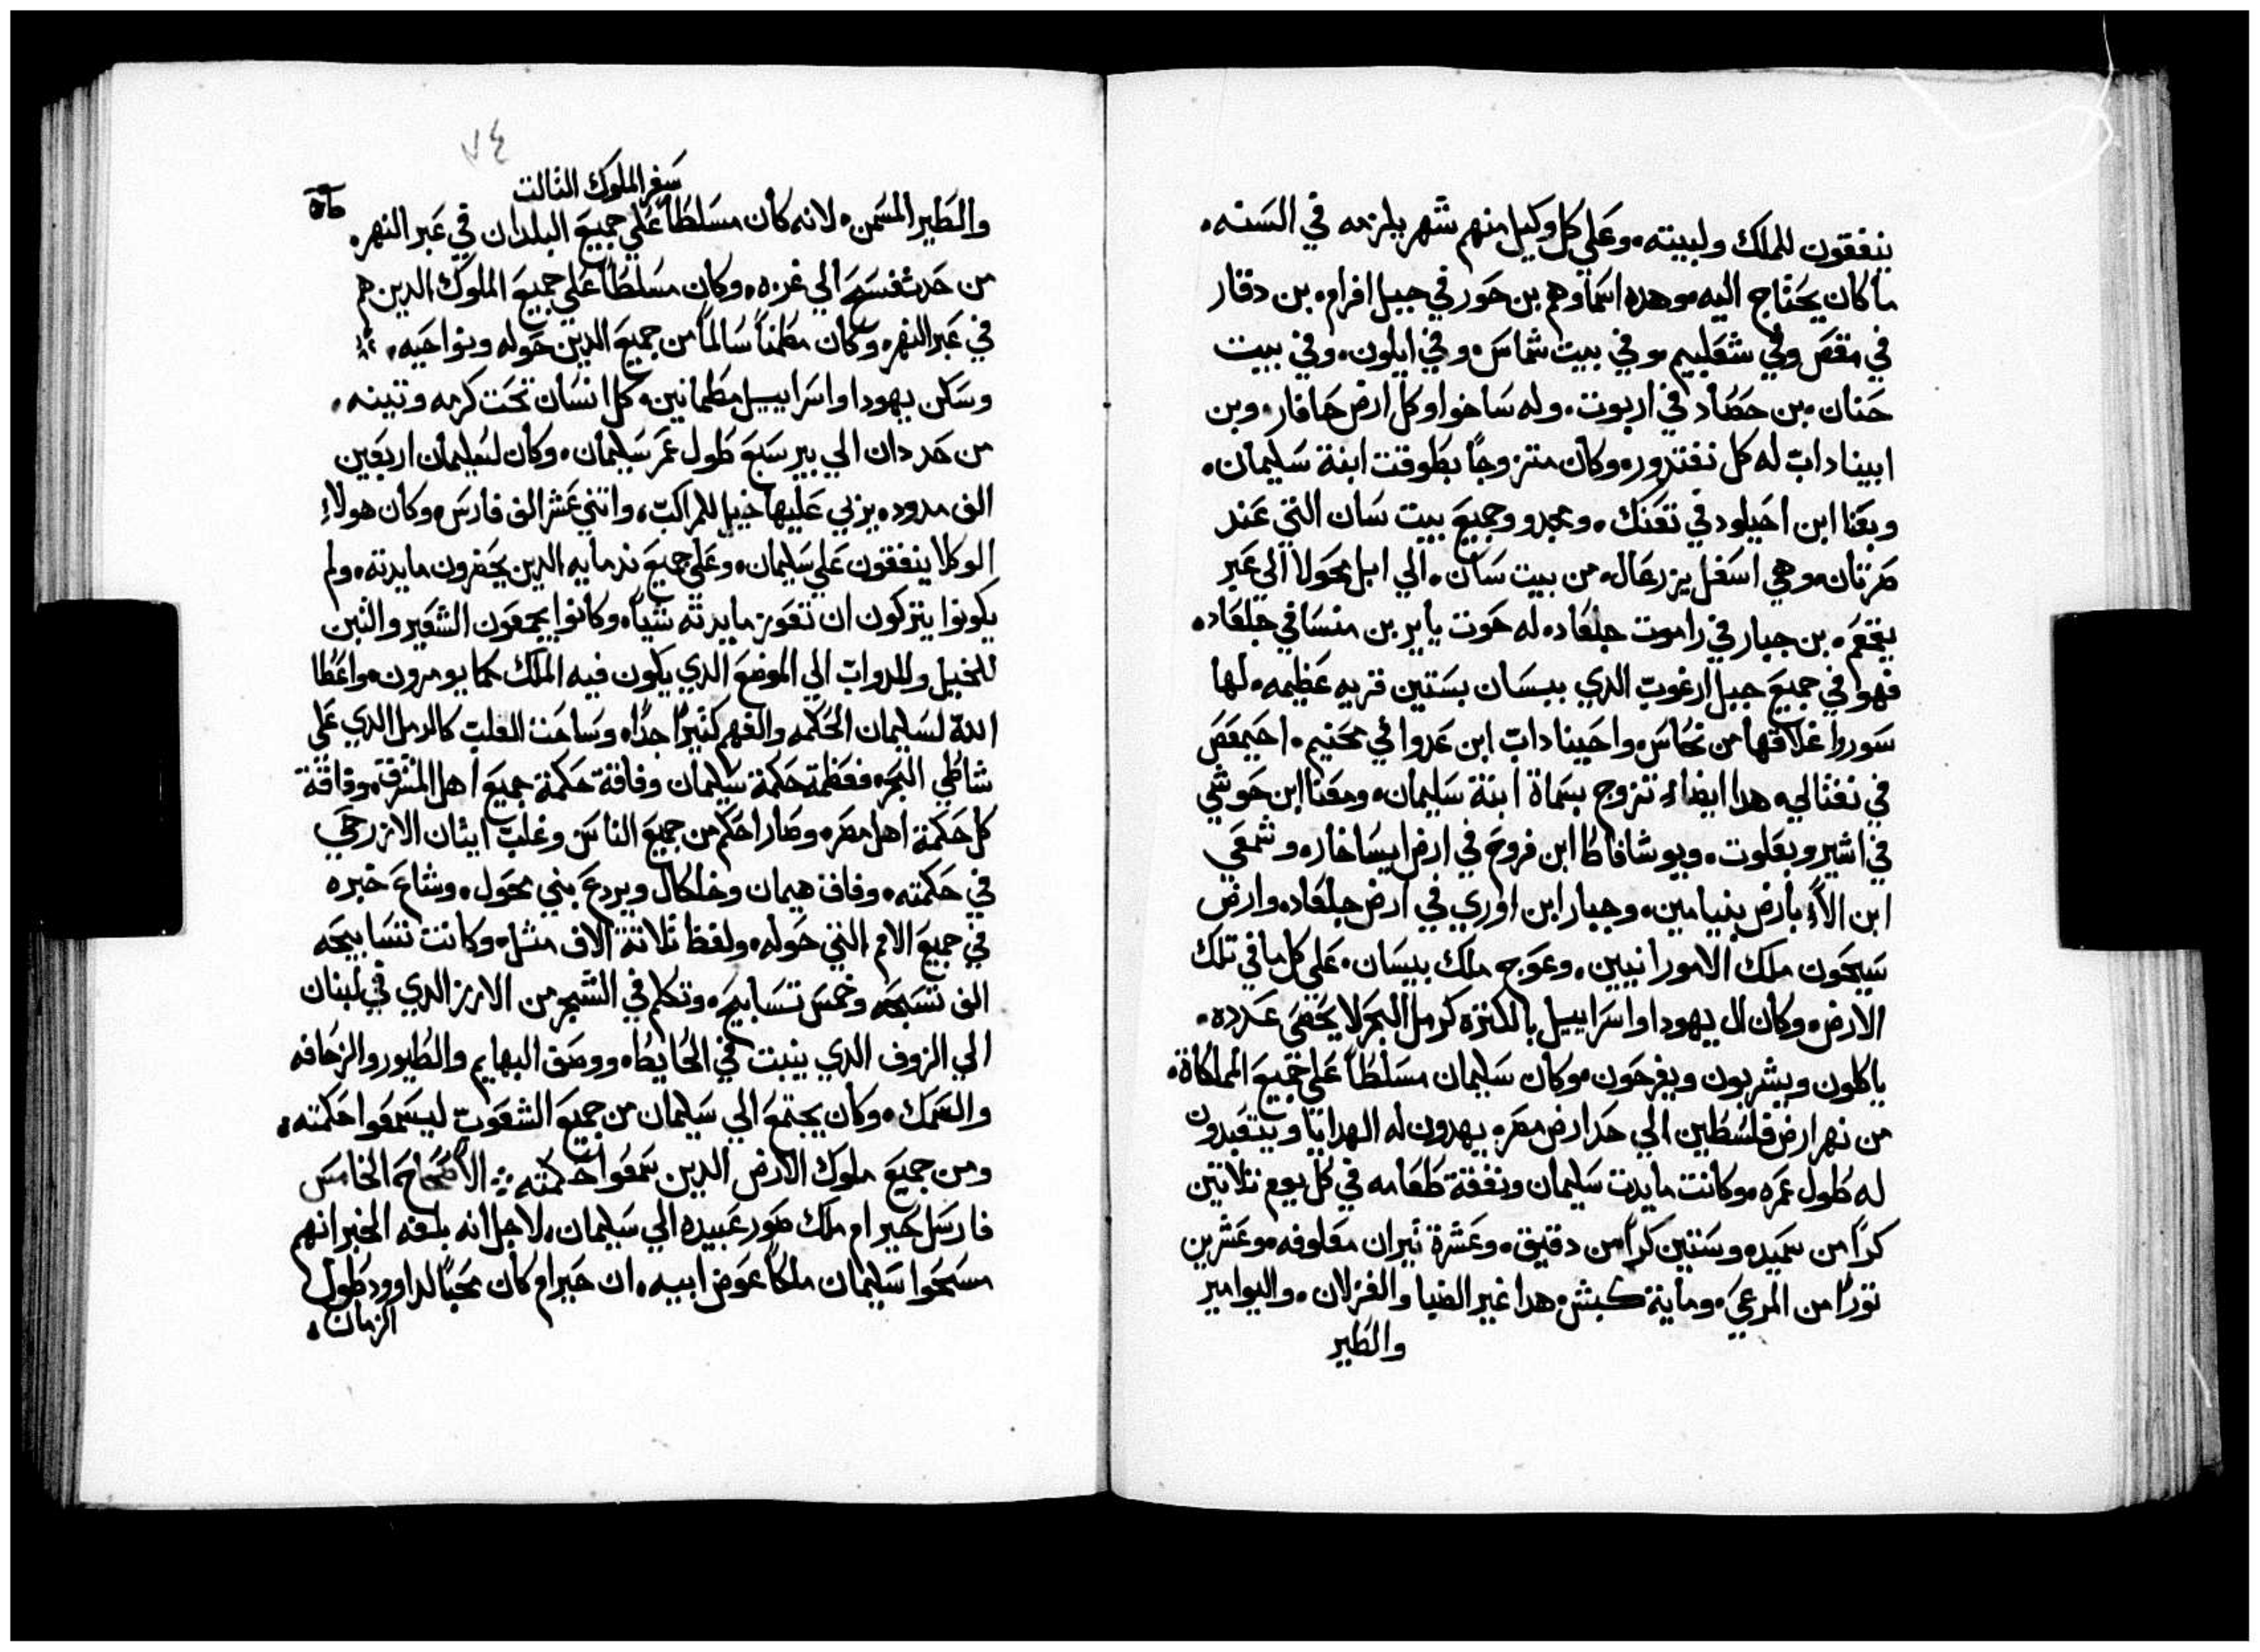 ينفقون للملك ولبيته، وعلي كل وكيل منهم شهر يلزمه في السنه،
ما كان يحتاج اليه، وهده اسماوهم بن حور في جبل افرام، بن دقار
في مقص وفي شعلبيم، وفي بيت شماس، وفي ايلون، وفي بيت
حنان، بن حصاد في اربوت، وله ساخوا وكل ارض حافار، وبن
ابيناداب له كل نفتدور، وكان متزوجاً بطوقت ابنة سليمان،
وبعنا ابن احيلود في تعنك، ومجدو وجميع بيت سان التي عند
صرتان، وهي اسفل يزرعال، من بيت سان، الي ابل محولا الي عبر
يقمعم، بن جبار في راموت جلعاد، له حوت يايير بن منسا في جلعاد،
فهو في جميع جبل ارغوب الدي ببسان بستين قريه عظيمه، لها
سور واغلاقها من نحاس، واحيناداب ابن عدوا في محنيم، احيمعص
في نفتالي، هدا ايضاً تزوج بسماة ابنة سليمان، وبعنا ابن حوشي
في اشير وبعلوت، ويوشافاط ابن فروح في ارض ايساخار، وشمعي
ابن الاا بارض بنيامين، وجبار ابن اوري في ارض جلعاد، وارض
سيحون ملك الامورانيين، وعوج ملك بيسان، علي كل ما في تلك
الارض، وكان ال يهودا واسراييل بالكتره كرمل البحر لا يحصى عدده،
ياكلون ويشربون ويفرحون، وكان سليمان مسلطاً علي جميع المملكاة،
من نهر ارض فلسطين الي حد ارض مصر، يهدون له الهدايا ويتعبدون
له طول عمره، وكانت مايدت سليمان ونفقة طعامه في كل يوم تلاتين
كراً من سميد، وستين كراً من دقيق، وعشرة تيران معلوفه، وعشرين
توراً من المرعي، وماية كبش، هدا غير الضبا والغزلان، واليوامير
والطير
٧٤
سفر الملوك التالت
والطير المسمن، لانه كان مسلطاً علي جميع البلدان في عبر النهر،
من حد تفسح الي غزه، وكان مسلطاً علي جميع الملوك الدين هم
في عبر النهر، وكان مطمناً سالماً من جميع الدين حوله ونواحيه،
وسكن يهودا واسراييل مطمانين، كل انسان تحت كرمه وتينه،
من حد دان الي بير سبع طول عمر سليمان، وكان لسليمان اربعين
الف مدود، يربي عليها خيل للمراكب، واتني عشر الف فارس، وكان هولاء
الوكلا ينفقون علي سليمان، وعلي جميع ندمايه الدين يحضرون مايدته، ولم
يكونوا يتركون ان تعوز مايدته شياً، وكانوا يجمعون الشعير والتبن
للخيل وللدواب الي الموضع الدي يكون فيه الملك كما يومرون، واعطا
الله لسليمان الحكمه والفهم كتيراً جداً، وساحت القلب كالرمل الدي علي
شاطي البحر، فعظمة حكمة سليمان وفاقة حكمة جميع اهل المشرق، وفاقة
كل حكمة اهل مصر، وصار احكم من جميع الناس وغلب ايتان الازرحي
في حكمته، وفاق هيمان وخلكال ويردع بني محول، وشاع خبره
في جميع الامم التي حوله، ولفظ تلاتة الاف متل، وكانت تسابيحه
الف تسبحه وخمس تسابيح، وتكلم في الشجر من الارز الدي في لبنان
الي الزوف الدي ينبت في الحايط، ووصف البهايم والطيور والزحافه
والسمك، وكان يجتمع الي سليمان من جميع الشعوب ليسمعوا حكمته،
ومن جميع ملوك الارض الدين سمعوا حكمته ؞ الاصحاح الخامس
فارسل حيرام ملك صور عبيده الي سليمان، لاجل انه بلغه الخبر انهم
مسحوا سليمان ملكاً عوض ابيه، ان حيرام كان محباً لداوود طول
الزمان،